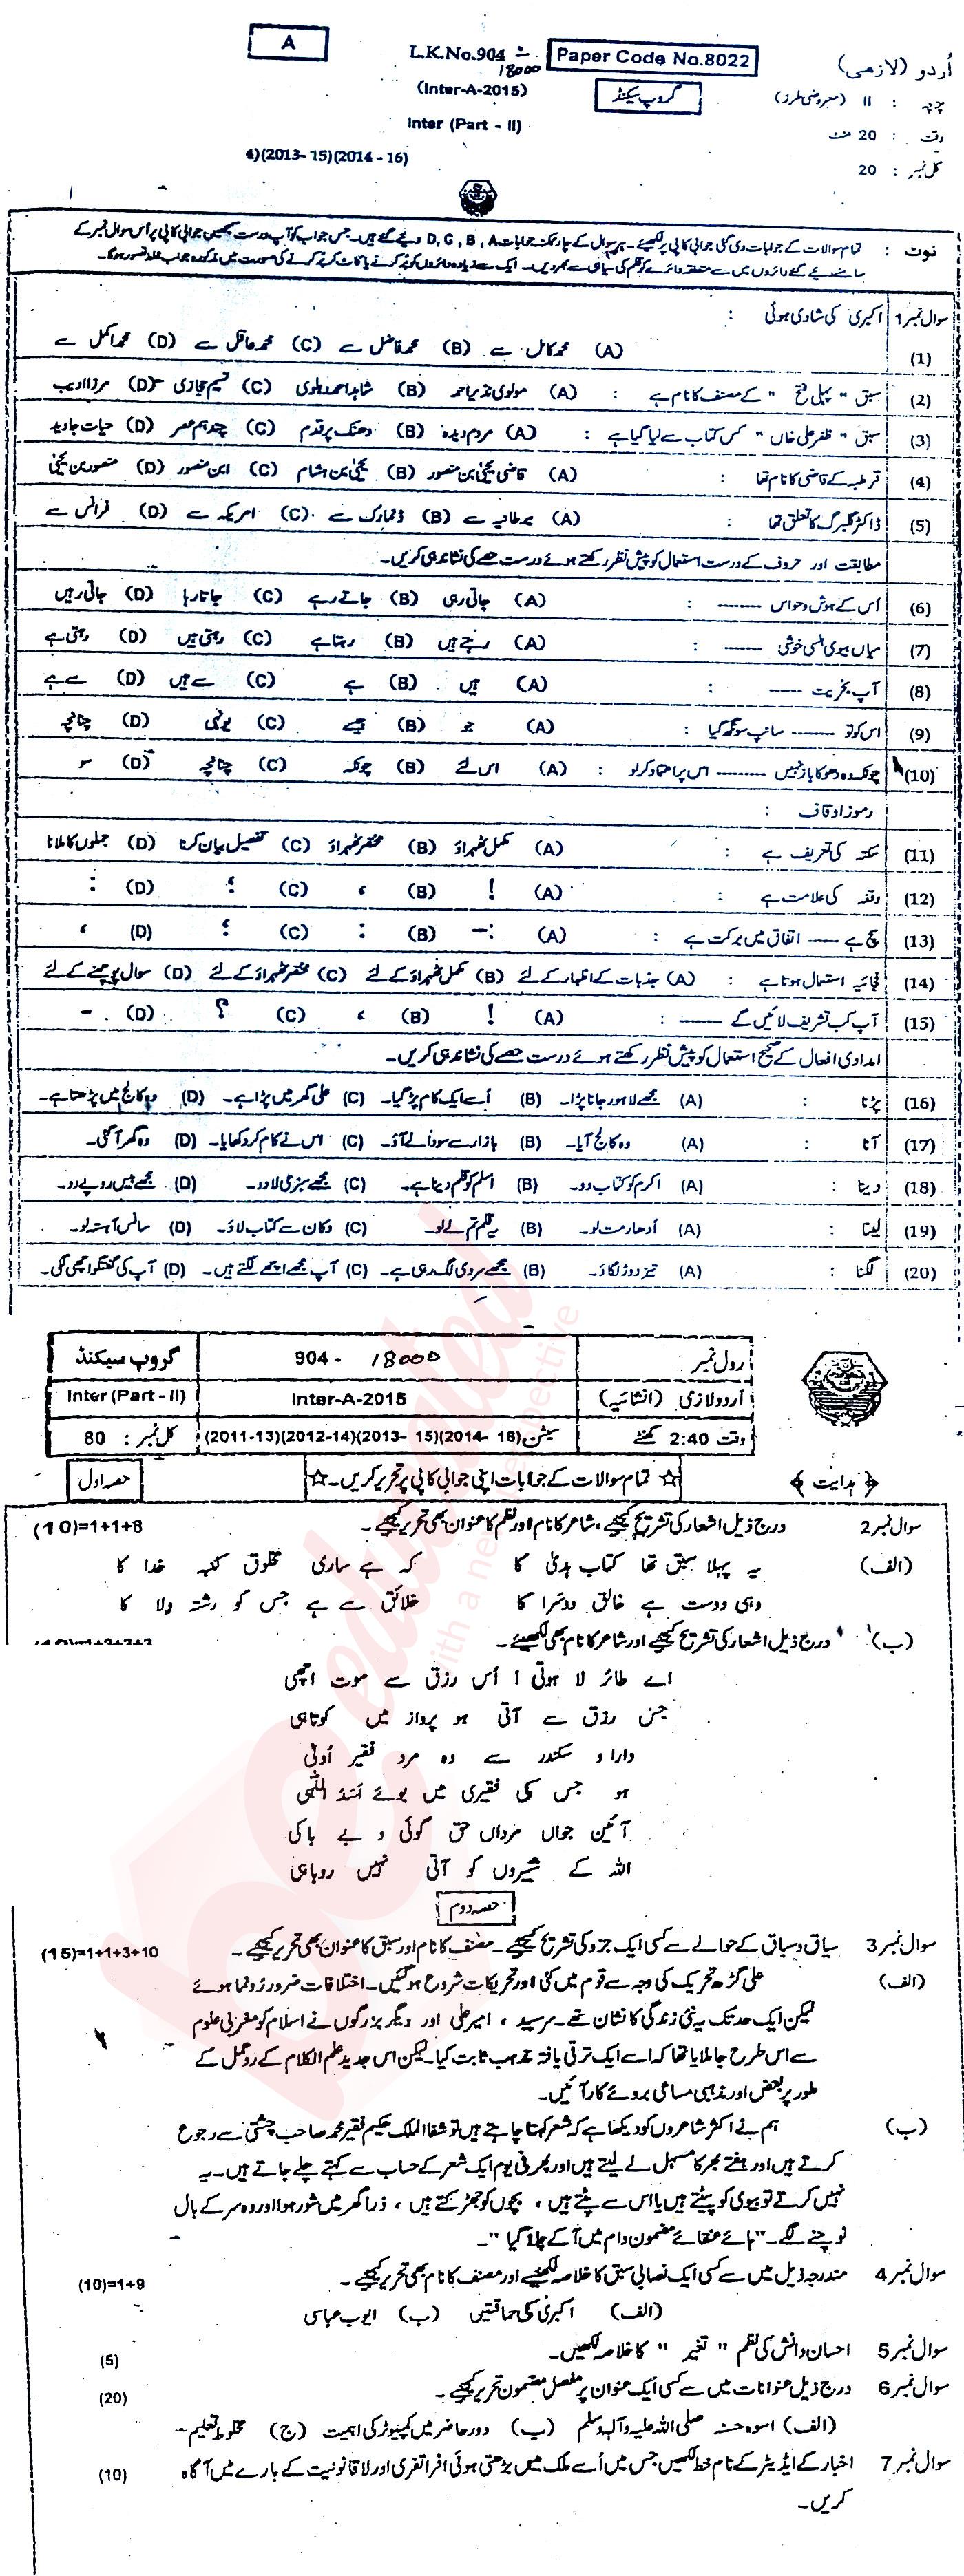 A
L.K.No.904
18000
Paper Code No.8022
اُردو (لازمی)
(Inter-A-2015)
گروپ سیکنڈ
پرچہ : II (معروضی طرز)
Inter (Part - II)
وقت : 20 منٹ
4)(2013- 15)(2014 - 16)
کل نمبر : 20
نوٹ : تمام سوالات کے جوابات دی گئی جوابی کاپی پر لکھیئے۔ ہر سوال کے چار ممکنہ جوابات D, C, B, A دیے گئے ہیں۔ جس جواب کو آپ درست سمجھیں جوابی کاپی پر اُس سوال نمبر کے
سامنے دیئے گئے دائروں میں سے متعلقہ دائرے کو قلم کی سیاہی سے بھر دیں۔ ایک سے زیادہ دائروں کو پُر کرنے یا کاٹ کر پُر کرنے کی صورت میں مذکورہ جواب غلط تصور ہو گا۔
سوال نمبر 1 اکبری کی شادی ہوئی :
(1) (A) محمد کامل سے (B) محمد فاضل سے (C) محمد عاقل سے (D) محمد اکمل سے
(2) سبق " پہلی فتح " کے مصنف کا نام ہے : (A) مولوی نذیر احمد (B) شاہد احمد دہلوی (C) نسیم حجازی (D) مرزا ادیب
(3) سبق " ظفر علی خاں " کس کتاب سے لیا گیا ہے : (A) مردم دیدہ (B) دھنک پر قدم (C) چند ہم عصر (D) حیات جاوید
(4) قرطبہ کے قاضی کا نام تھا : (A) قاضی یحییٰ بن منصور (B) یحییٰ بن ہشام (C) ابن منصور (D) منصور بن یحییٰ
(5) ڈاکٹر گلبرگ کا تعلق تھا : (A) برطانیہ سے (B) ڈنمارک سے (C) امریکہ سے (D) فرانس سے
مطابقت اور حروف کے درست استعمال کو پیش نظر رکھتے ہوئے درست حصے کی نشاندہی کریں۔
(6) اُس کے ہوش و حواس ------- : (A) جاتی رہی (B) جاتے رہے (C) جاتا رہا (D) جاتی رہیں
(7) میاں بیوی ہنسی خوشی ------- : (A) رہتے ہیں (B) رہتا ہے (C) رہتی ہیں (D) رہتی ہے
(8) آپ بخیریت ------ : (A) ہیں (B) ہے (C) سے ہیں (D) سے ہے
(9) اس کو تو ------- سانپ سونگھ گیا : (A) جو (B) جیسے (C) یونہی (D) چنانچہ
(10) چونکہ وہ دھوکا باز نہیں ------- اس پر اعتماد کر لو : (A) اس لئے (B) چونکہ (C) چنانچہ (D) سو
رموز اوقاف :
(11) سکتہ کی تعریف ہے : (A) مکمل ٹھہراؤ (B) مختصر ٹھہراؤ (C) تفصیل بیان کرنا (D) جملوں کا ملانا
(12) وقفہ کی علامت ہے : (A) ! (B) ، (C) ؛ (D) :
(13) سچ ہے ---- اتفاق میں برکت ہے : (A) :- (B) : (C) ؛ (D) ،
(14) فجائیہ استعمال ہوتا ہے : (A) جذبات کے اظہار کے لئے (B) مکمل ٹھہراؤ کے لئے (C) مختصر ٹھہراؤ کے لئے (D) سوال پوچھنے کے لئے
(15) آپ کب تشریف لائیں گے ------- : (A) ! (B) ، (C) ؟ (D) -
امدادی افعال کے صحیح استعمال کو پیش نظر رکھتے ہوئے درست حصے کی نشاندہی کریں۔
(16) پڑنا : (A) مجھے لاہور جانا پڑا۔ (B) اُسے ایک کام پڑ گیا۔ (C) علی گھر میں پڑا ہے۔ (D) وہ کالج میں پڑھتا ہے۔
(17) آنا : (A) وہ کالج آیا۔ (B) بازار سے سودا لے آؤ۔ (C) اس نے کام کر دکھایا۔ (D) وہ گھر آ گئی۔
(18) دینا : (A) اکرم کو کتاب دو۔ (B) اسلم کو قلم دینا ہے۔ (C) مجھے سبزی لا دو۔ (D) مجھے بیس روپے دو۔
(19) لینا : (A) اُدھار مت لو۔ (B) یہ قلم تم لے لو۔ (C) دکان سے کتاب لاؤ۔ (D) سانس آہستہ لو۔
(20) لگنا : (A) تیز دوڑ لگاؤ۔ (B) مجھے سردی لگ رہی ہے۔ (C) آپ مجھے اچھے لگتے ہیں۔ (D) آپ کی گفتگو اچھی لگی۔
رول نمبر 904 - 18000 گروپ سیکنڈ
اُردو لازمی (انشائیہ) Inter-A-2015 Inter (Part - II)
وقت 2:40 گھنٹے سیشن (2011-13)(2012-14)(2013- 15)(2014- 16) کل نمبر : 80
﴿ ہدایت ﴾ ☆ تمام سوالات کے جوابات اپنی جوابی کاپی پر تحریر کریں۔ ☆ حصہ اول
سوال نمبر 2 درج ذیل اشعار کی تشریح کیجیے ، شاعر کا نام اور نظم کا عنوان بھی تحریر کیجیے۔ (10)=1+1+8
(الف) یہ پہلا سبق تھا کتاب ہدیٰ کا کہ ہے ساری مخلوق کنبہ خدا کا
وہی دوست ہے خالق دوسرا کا خلائق سے ہے جس کو رشتہ ولا کا
(ب) درج ذیل اشعار کی تشریح کیجیے اور شاعر کا نام بھی لکھیئے۔
اے طائر لا ہوتی ! اُس رزق سے موت اچھی
جس رزق سے آتی ہو پرواز میں کوتاہی
دارا و سکندر سے وہ مرد فقیر اُولیٰ
ہو جس کی فقیری میں بوئے اَسَدُ اللّٰہی
آئین جواں مرداں حق گوئی و بے باکی
اللہ کے شیروں کو آتی نہیں روباہی
حصہ دوم
سوال نمبر 3 سیاق و سباق کے حوالے سے کسی ایک جزو کی تشریح کیجیے۔ مصنف کا نام اور سبق کا عنوان بھی تحریر کیجیے۔ (15)=1+1+3+10
(الف) علی گڑھ تحریک کی وجہ سے قوم میں کئی اور تحریکات شروع ہو گئیں۔ اختلافات ضرور رُونما ہوئے
لیکن ایک حد تک یہ نئی زندگی کا نشان تھے۔ سرسید ، امیر علی اور دیگر بزرگوں نے اسلام کو مغربی علوم
سے اس طرح جا ملایا تھا کہ اسے ایک ترقی یافتہ مذہب ثابت کیا۔ لیکن اس جدید علم الکلام کے ردِ عمل کے
طور پر بعض اور مذہبی مساعی بروئے کار آئیں۔
(ب) ہم نے اکثر شاعروں کو دیکھا ہے کہ شعر کہنا چاہتے ہیں تو شفا الملک حکیم فقیر محمد صاحب چشتی سے رجوع
کرتے ہیں اور ہفتے بھر کا مسہل لے لیتے ہیں اور پھر فی یوم ایک شعر کے حساب سے کہتے چلے جاتے ہیں۔ یہ
نہیں کرتے تو بیوی کو پیٹتے ہیں یا اس سے پٹتے ہیں ، بچوں کو جھڑکتے ہیں ، ذرا گھر میں شور ہوا اور وہ سر کے بال
نوچنے لگے۔ "ہائے عنقائے مضمون دام میں آ کے چلا گیا "۔
سوال نمبر 4 مندرجہ ذیل میں سے کسی ایک نصابی سبق کا خلاصہ لکھیئے اور مصنف کا نام بھی تحریر کیجیے۔ (10)=1+9
(الف) اکبری کی حماقتیں (ب) ایوب عباسی
سوال نمبر 5 احسان دانش کی نظم " تغیر " کا خلاصہ لکھیں۔ (5)
سوال نمبر 6 درج ذیل عنوانات میں سے کسی ایک عنوان پر مفصل مضمون تحریر کیجیے۔ (20)
(الف) اسوہ حسنہ صلی اللہ علیہ و آلہ وسلم (ب) دور حاضر میں کمپیوٹر کی اہمیت (ج) مخلوط تعلیم-
سوال نمبر 7 اخبار کے ایڈیٹر کے نام خط لکھیں جس میں اُسے ملک میں بڑھتی ہوئی افراتفری اور لاقانونیت کے بارے میں آگاہ (10)
کریں۔